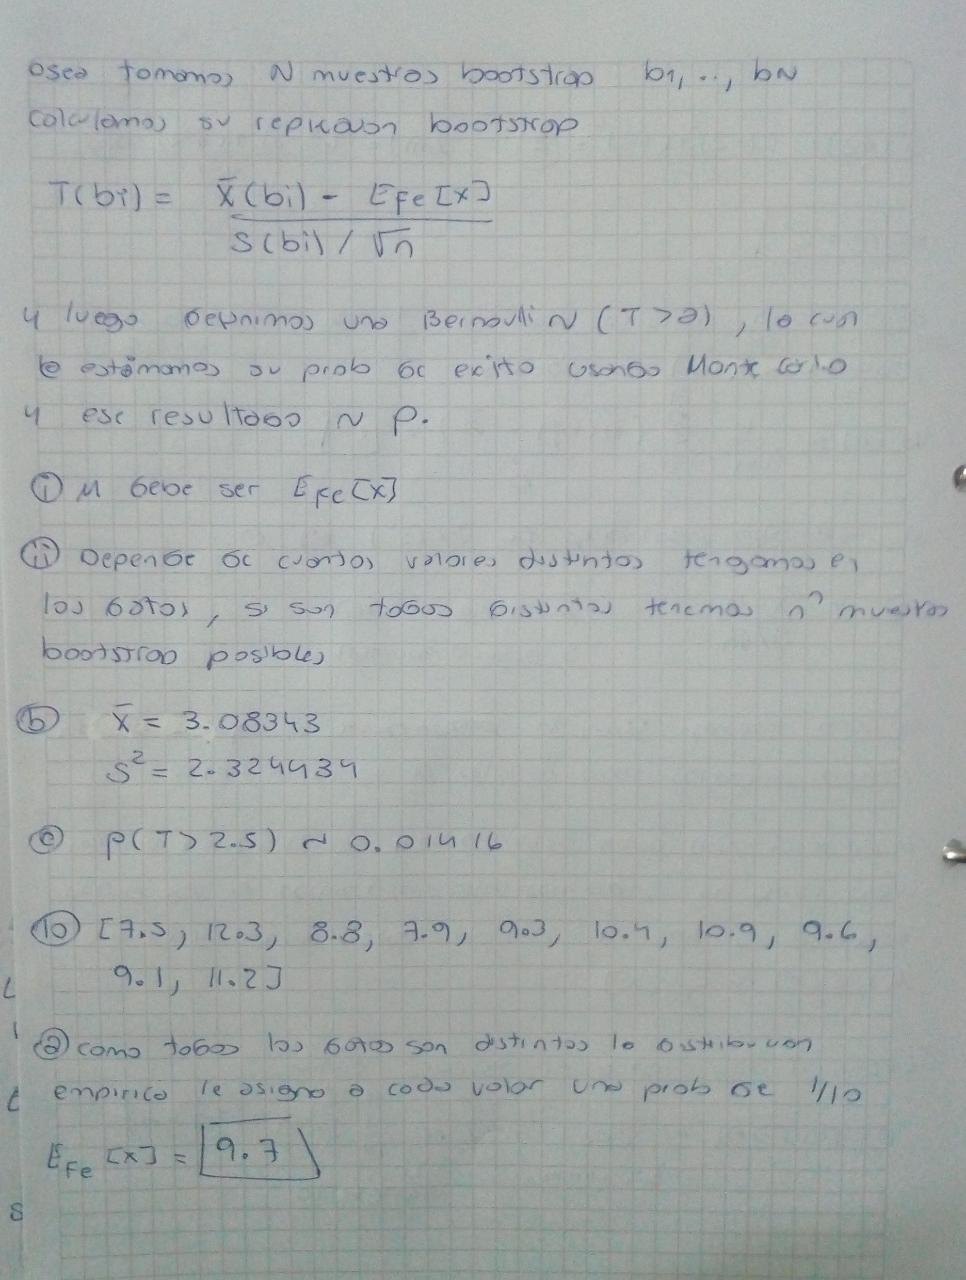 osea tomamos N muestras bootstrap b1, .., bN
calculamos su replicacion bootstrap
T(bi) = X̄(bi) - E_Fe[X]
S(bi) / √n
y luego definimos una Bernoulli ~ (T > a), la cual
le estimamos su prob de exito usando Monte Carlo
y ese resultado ~ p.
(i) M debe ser E_Fe[X]
(ii) Depende de cuantos valores distintos tengamos en
los datos, si son todos distintos tenemos nⁿ muestras
bootstrap posibles
(b) X̄ = 3.08343
S² = 2.324434
(c) P(T > 2.5) ~ 0.01416
(10) [7.5, 12.3, 8.8, 7.9, 9.3, 10.4, 10.9, 9.6,
9.1, 11.2]
(a) como todos los datos son distintos la distribucion
empirica le asigna a cada valor una prob de 1/10
E_Fe[X] = 9.7